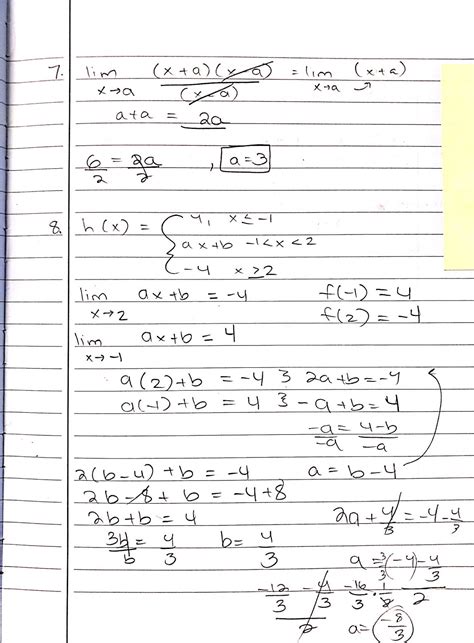 7. lim x→a (x+a)(x-a) / (x-a) = lim x→a (x+a)
a+a = 2a
6/2 = 2a/2 , a=3
8. h(x) = { 4, x≤-1
ax+b -1<x<2
-4 x≥2
lim x→2 ax+b = -4 f(-1) = 4
f(2) = -4
lim x→-1 ax+b = 4
a(2)+b = -4 } 2a+b=-4
a(-1)+b = 4 } -a+b=4
-a/-a = 4-b/-a
2(b-4)+b = -4 a = b-4
2b-8+b = -4+8
2b+b = 4 2a+4/3 = -4-4/3
3b/b = 4/3 b=4/3
a = 3/3(-4)-4/3
-12/3 -4/3 -16/3 · 1/2
2
a= -8/3